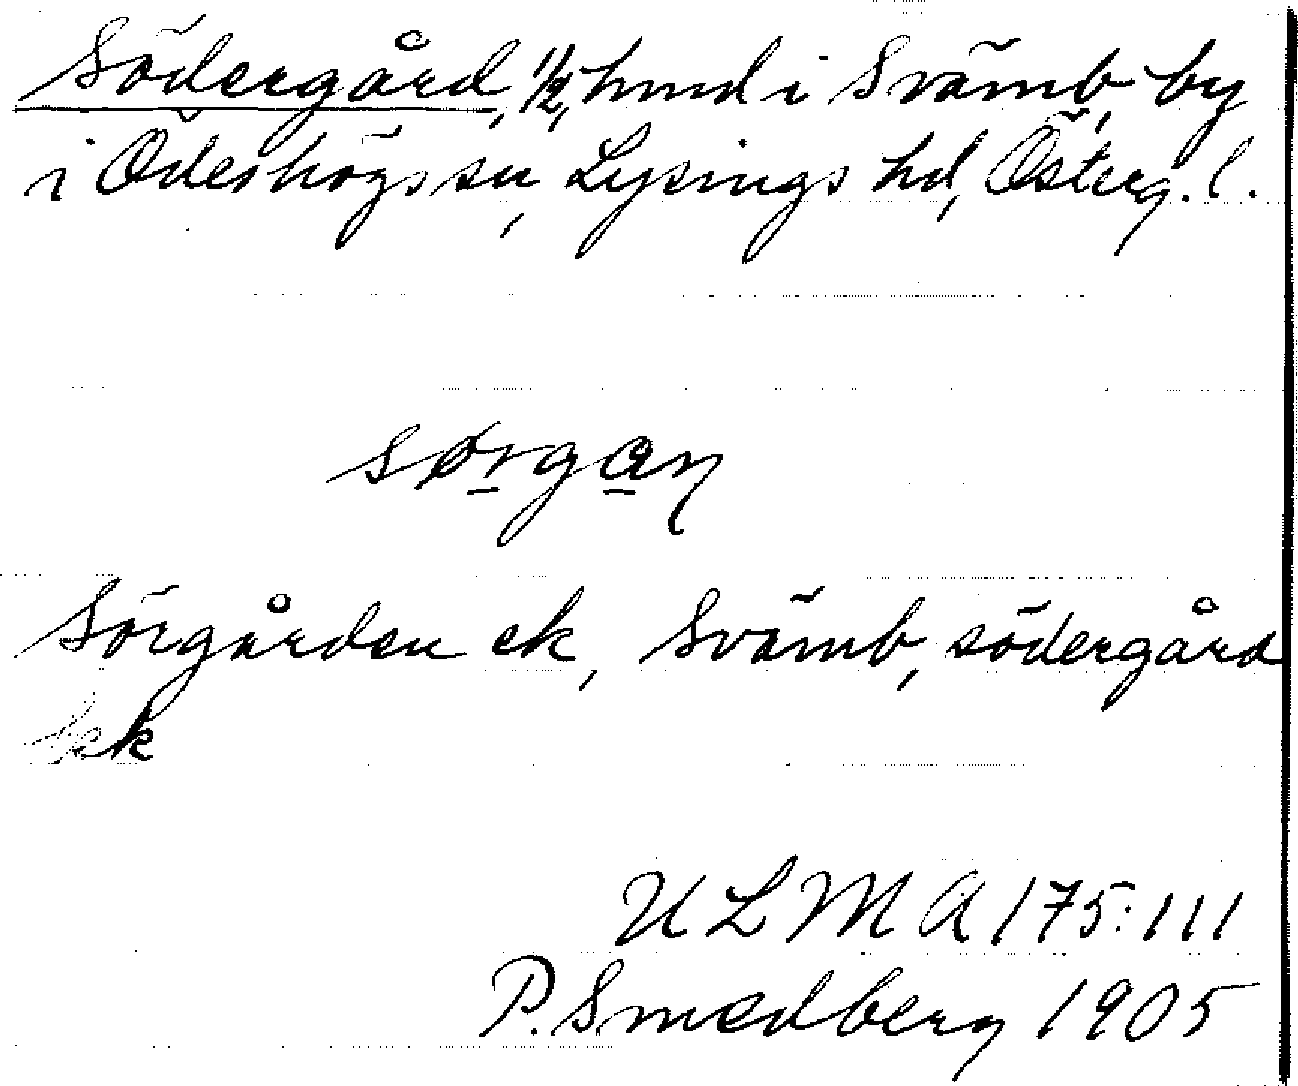 Södergård, 1/2, hmd i Svämb, by
i Ödeshögs sn, Lysings hd, Österg. l.
sørgan
Sörgården ek, Svämb, södergård
kk
ULMA 175:111
P. Smedberg 1905